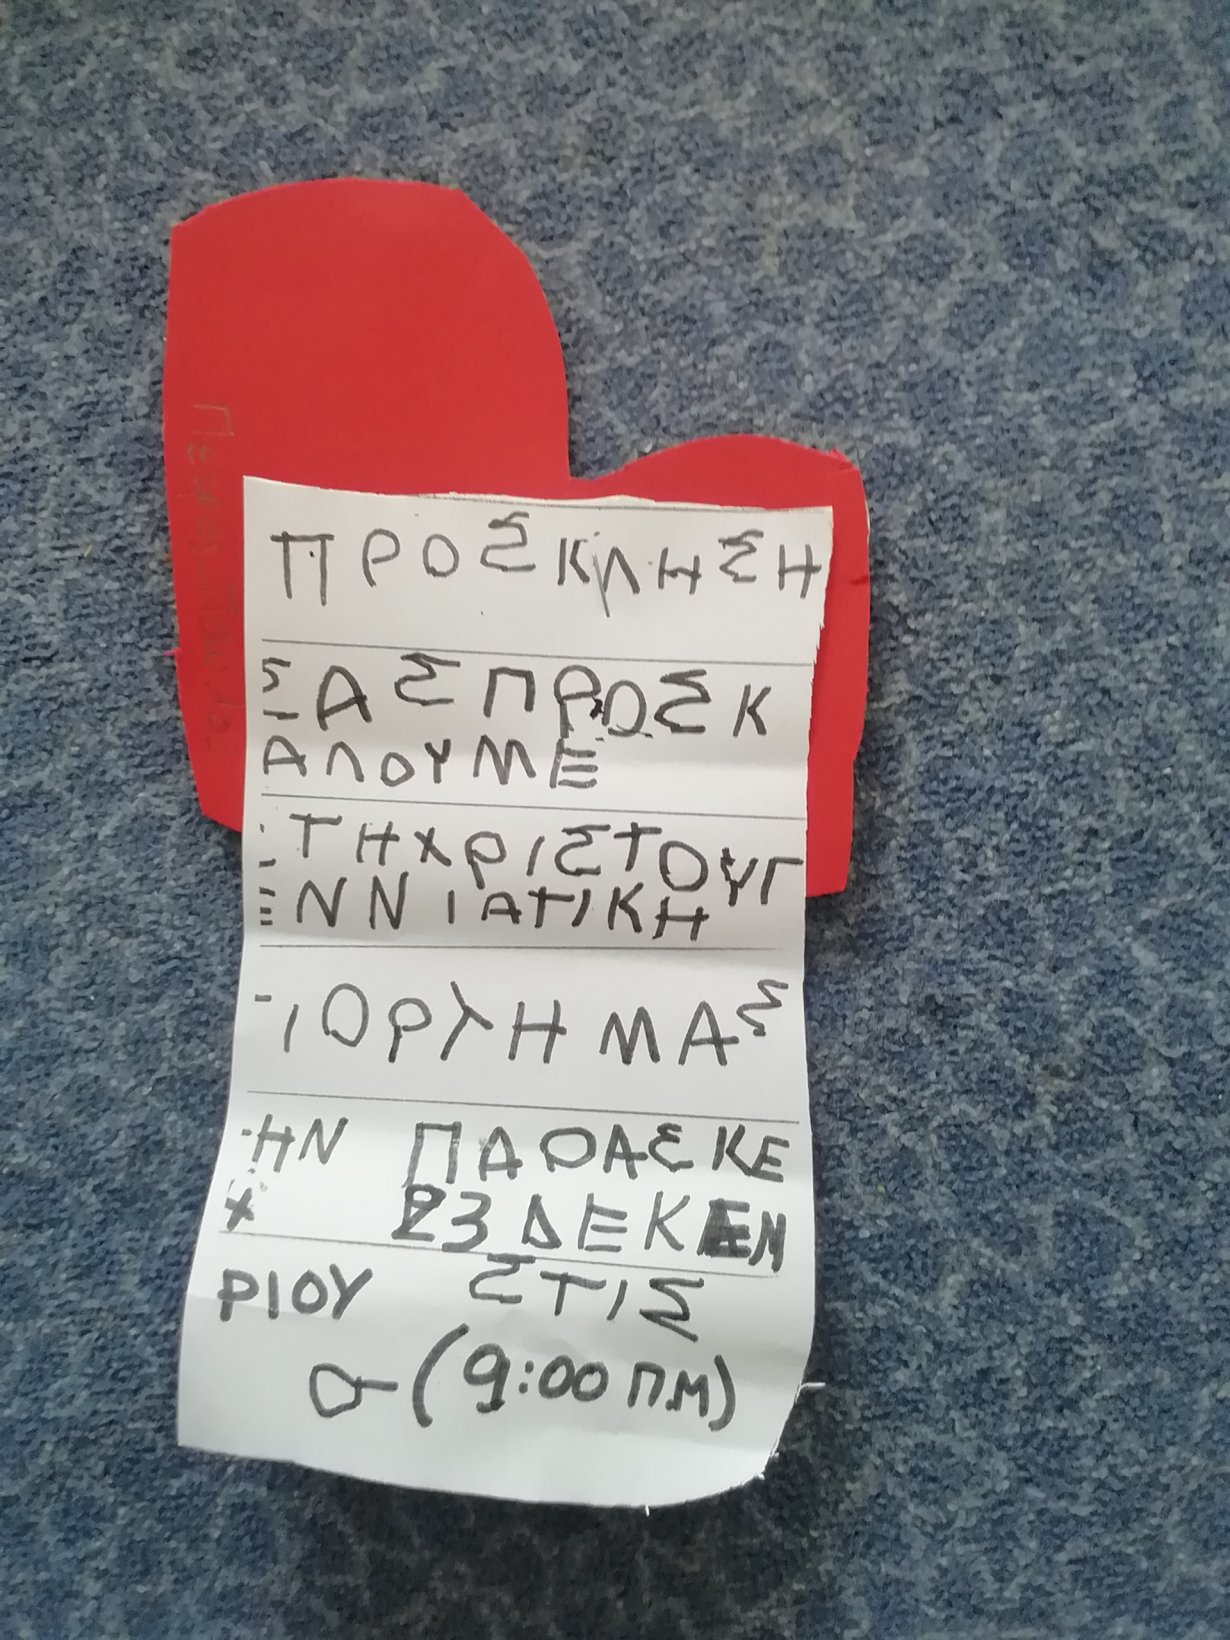 ΠΡΟΣΚΛΗΣΗ
ΣΑΣ ΠΡΟΣΚ
ΑΛΟΥΜΕ
ΣΤΗ ΧΡΙΣΤΟΥΓ
ΕΝΝΙΑΤΙΚΗ
ΓΙΟΡΥΗ ΜΑΣ
ΤΗΝ ΠΑΡΑΣΚΕ
23 ΔΕΚΕΜ
ΡΙΟΥ ΣΤΙΣ
(9:00 Π.Μ)